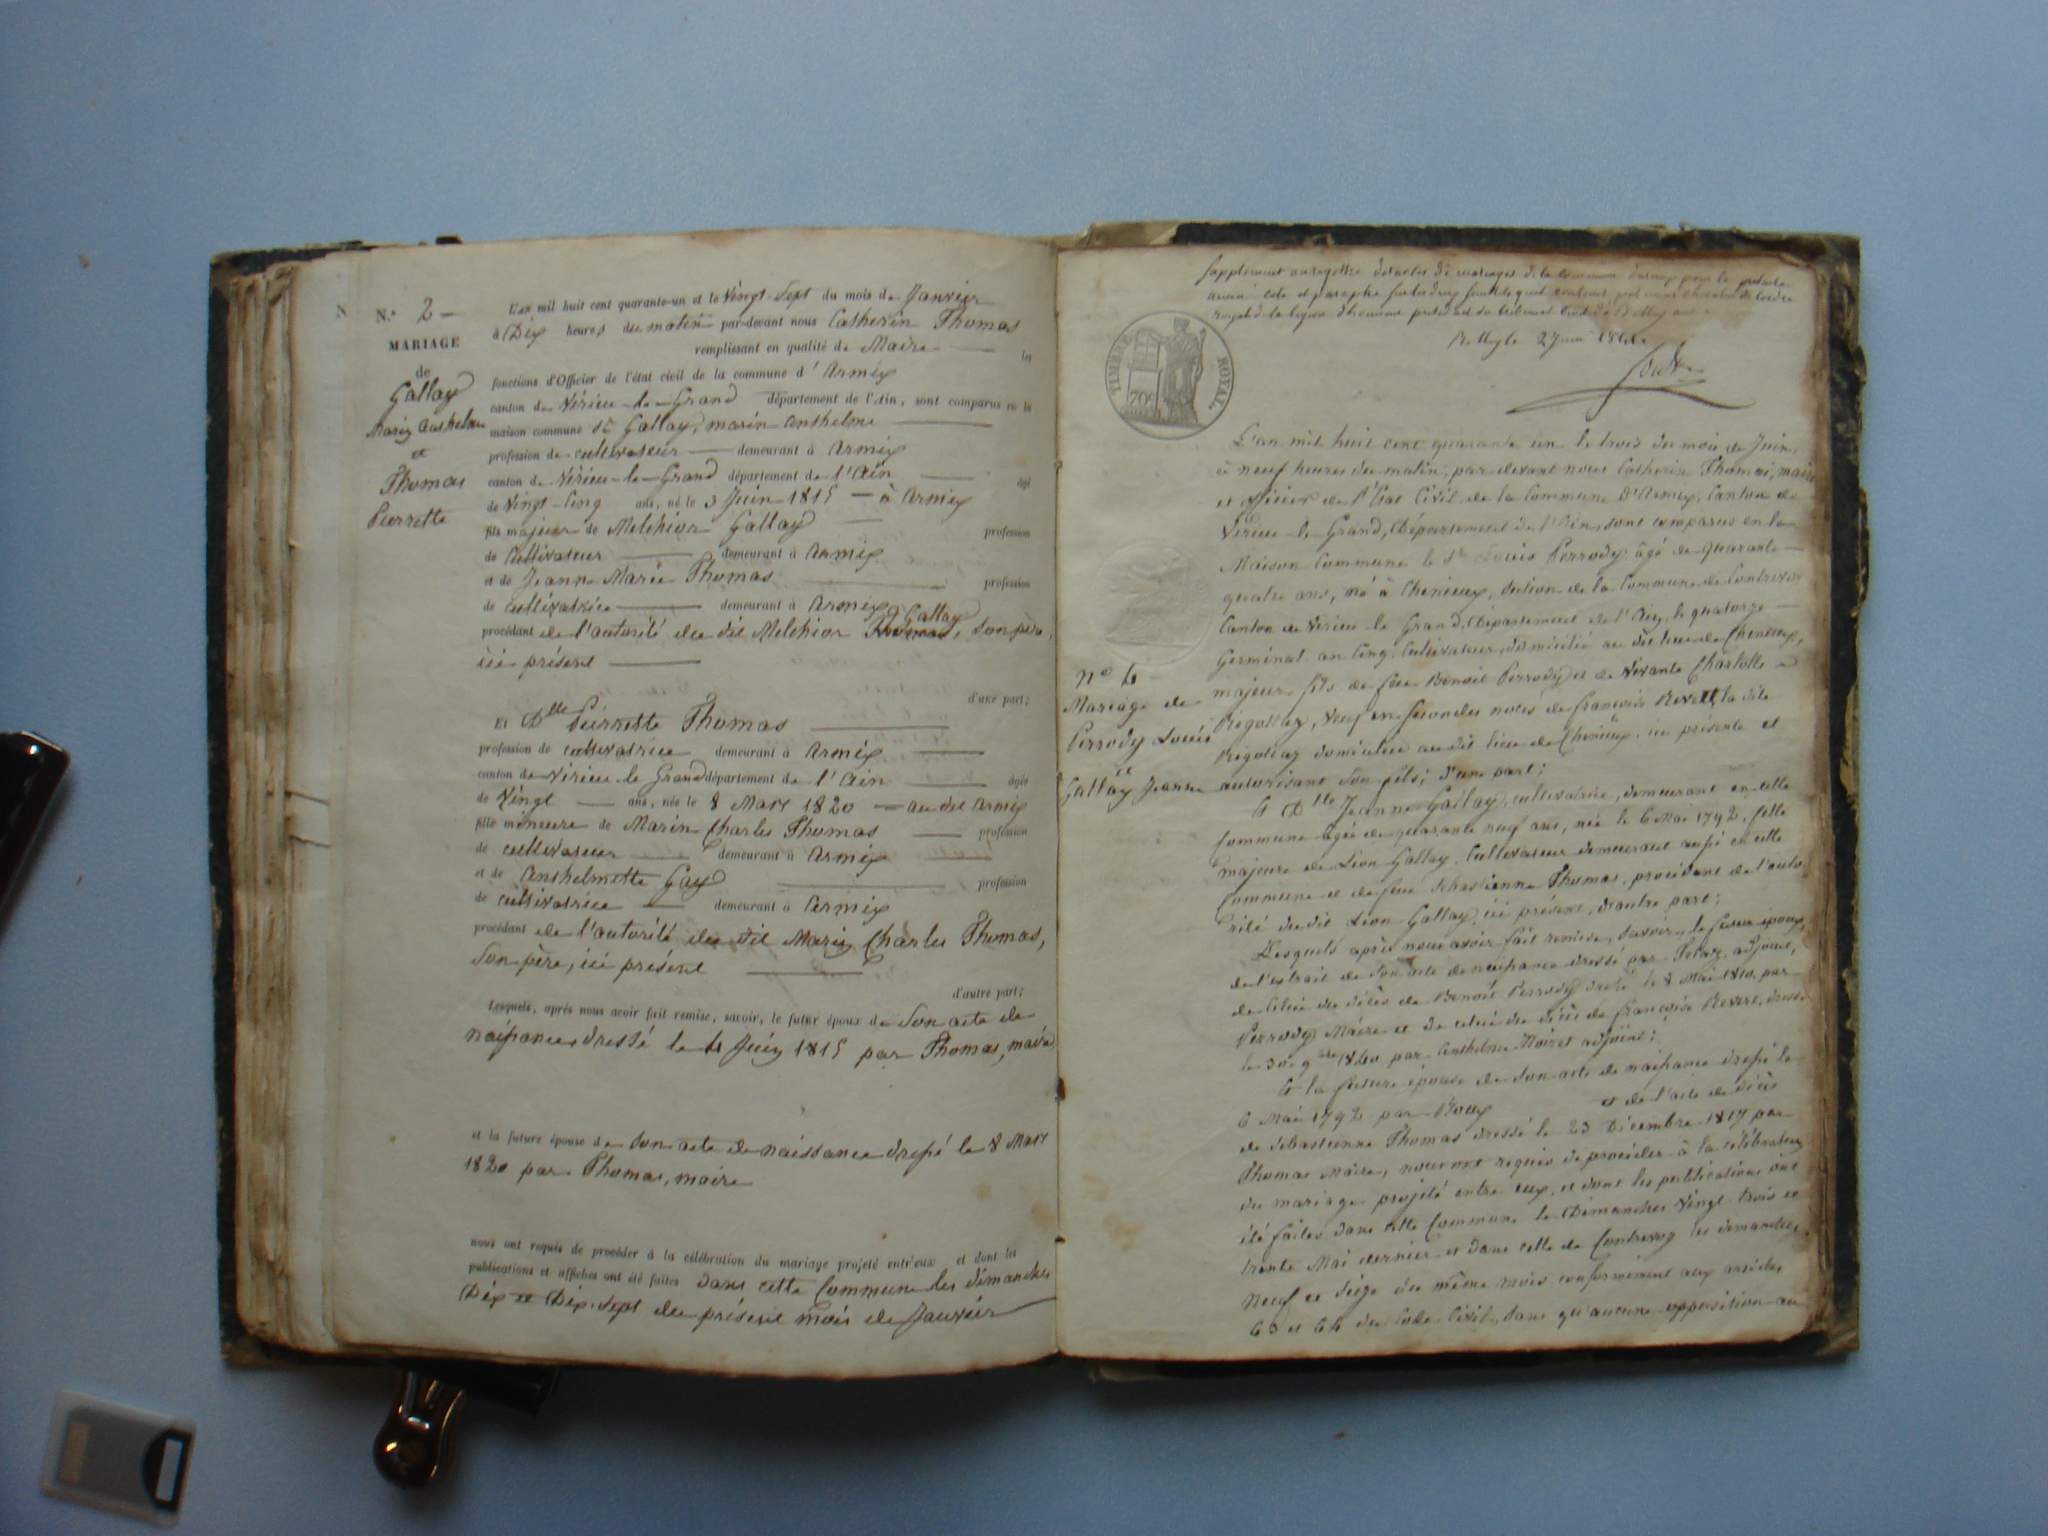 N
N.° 2 —
MARIAGE
de
Gallay
Marin Anthelme
et
Thomas
Pierrette
L'AN mil huit cent quarante-un et le Vingt-Sept du mois de Janvier
à Dix heures du matin par-devant nous Catherin Thomas
remplissant en qualité de Maire les
fonctions d'Officier de l'état civil de la commune d'Armix
canton de Virieu-le-Grand département de l'Ain, sont comparus en la
maison commune Sr Gallay, marin anthelme
profession de cultivateur demeurant à Armix
canton de Virieu-le-Grand département de l'Ain âgé
de Vingt-Cinq ans, né le 3 Juin 1815 — à Armix
fils majeur de Melchior Gallay profession
de Cultivateur demeurant à Armix
et de Jeanne Marie Thomas profession
de cultivatrice demeurant à Armix
procédant de l'autorité du dit Melchior Thomas Gallay, son père,
ici présent
d'une part;
ET Dlle Pierrette Thomas
profession de cultivatrice demeurant à Armix
canton de Virieu le Grand département de l'Ain âgée
de Vingt ans, née le 8 Mars 1820 — au dit Armix
fille mineure de Marin Charles Thomas profession
de cultivateur demeurant à Armix
et de Anthelmette Gay profession
de cultivatrice demeurant à Armix
procédant de l'autorité du dit Marin Charles Thomas,
son père, ici présent
d'autre part;
Lesquels, après nous avoir fait remise, savoir, le futur époux de son acte de
naissance dressé le 4 Juin 1815 par Thomas, maire
et la future épouse de son acte de naissance dressé le 8 Mars
1820 par Thomas, maire
nous ont requis de procéder à la célébration du mariage projeté entr'eux et dont les
publications et affiches ont été faites dans cette Commune les dimanches
Dix et Dix-Sept du présent mois de Janvier
Supplément au registre des actes de mariages de la commune d'armix pour la présente
année coté et paraphé par
royal de la légion d'honneur président du tribunal civil de Belley
Belley le 2 Juin 1841
TIMBRE ROYAL
70c
N° 4
Mariage de
Perrody Louis
et
Gallay Jeanne
L'an mil huit cent quarante un le trois du mois de Juin
à neuf heures du matin, par devant nous Catherin Thomas, maire
et officier de l'Etat Civil de la Commune d'Armix, Canton de
Virieu le Grand, Département de l'Ain, sont comparus en la
Maison Commune le Sr Louis Perrody âgé de quarante
quatre ans, né à Chenieux, section de la Commune de Contrevoz
Canton de Virieu le Grand, Département de l'Ain, le quatorze
Germinal an Cinq, Cultivateur, domicilié au dit lieu de Chenieux,
majeur fils de feu Benoit Perrody et de vivante Charlotte
Rigottaz, veuf en secondes noces de françoise Revet, la dite
Rigottaz domiciliée au dit lieu de Chenieux, ici présente et
autorisant son fils; d'une part;
Et Dlle Jeanne Gallay, cultivatrice, demeurant en cette
Commune âgée de quarante neuf ans, née le 6 Mai 1792, fille
majeure de Léon Gallay, Cultivateur demeurant aussi en cette
Commune et de feue Sebastienne Thomas, procédant de l'auto-
rité du dit Léon Gallay ici présent, d'autre part;
Lesquels après nous avoir fait remise, savoir, le futur époux,
de l'extrait de son acte de naissance dressé par adjoint,
de celui du décès de Benoit Perrody dressé le 8 Mai 1810, par
Perrody Maire et de celui du décès de françoise Revet, dressé
le 30 9bre 1840 par Anthelme Noiret adjoint;
Et la future épouse de son acte de naissance dressé le
6 Mai 1792 par Roux et de l'acte de décès
de Sebastienne Thomas dressé le 23 Décembre 1817 par
Thomas Maire, nous ont requis de procéder à la célébration
du mariage projeté entre eux, et dont les publications ont
été faites dans cette Commune les Dimanches Vingt-trois et
trente Mai dernier et dans celle de Contrevoz les dimanches
Neuf et Seize du même mois conformément aux articles
63 et 64 du Code Civil, sans qu'aucune opposition au